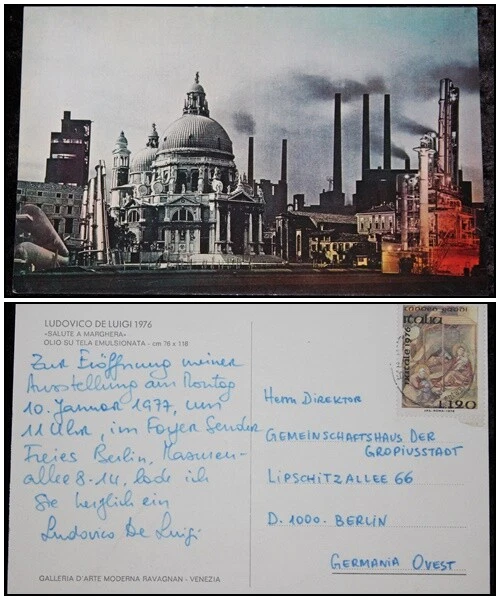 LUDOVICO DE LUIGI 1976
«SALUTE A MARGHERA»
OLIO SU TELA EMULSIONATA - cm 76 x 118
Zur Eröffnung meiner
Ausstellung am Montag
10. Januar 1977, um
11 Uhr, im Foyer Sender
Freies Berlin, Masuren-
allee 8-14, lade ich
Sie herzlich ein
Ludovico De Luigi
GALLERIA D'ARTE MODERNA RAVAGNAN - VENEZIA
Italia
NATALE 1976
L120
Herrn Direktor
GEMEINSCHAFTSHAUS DER
GROPIUSSTADT
LIPSCHITZALLEE 66
D. 1000. BERLIN
GERMANIA OVEST